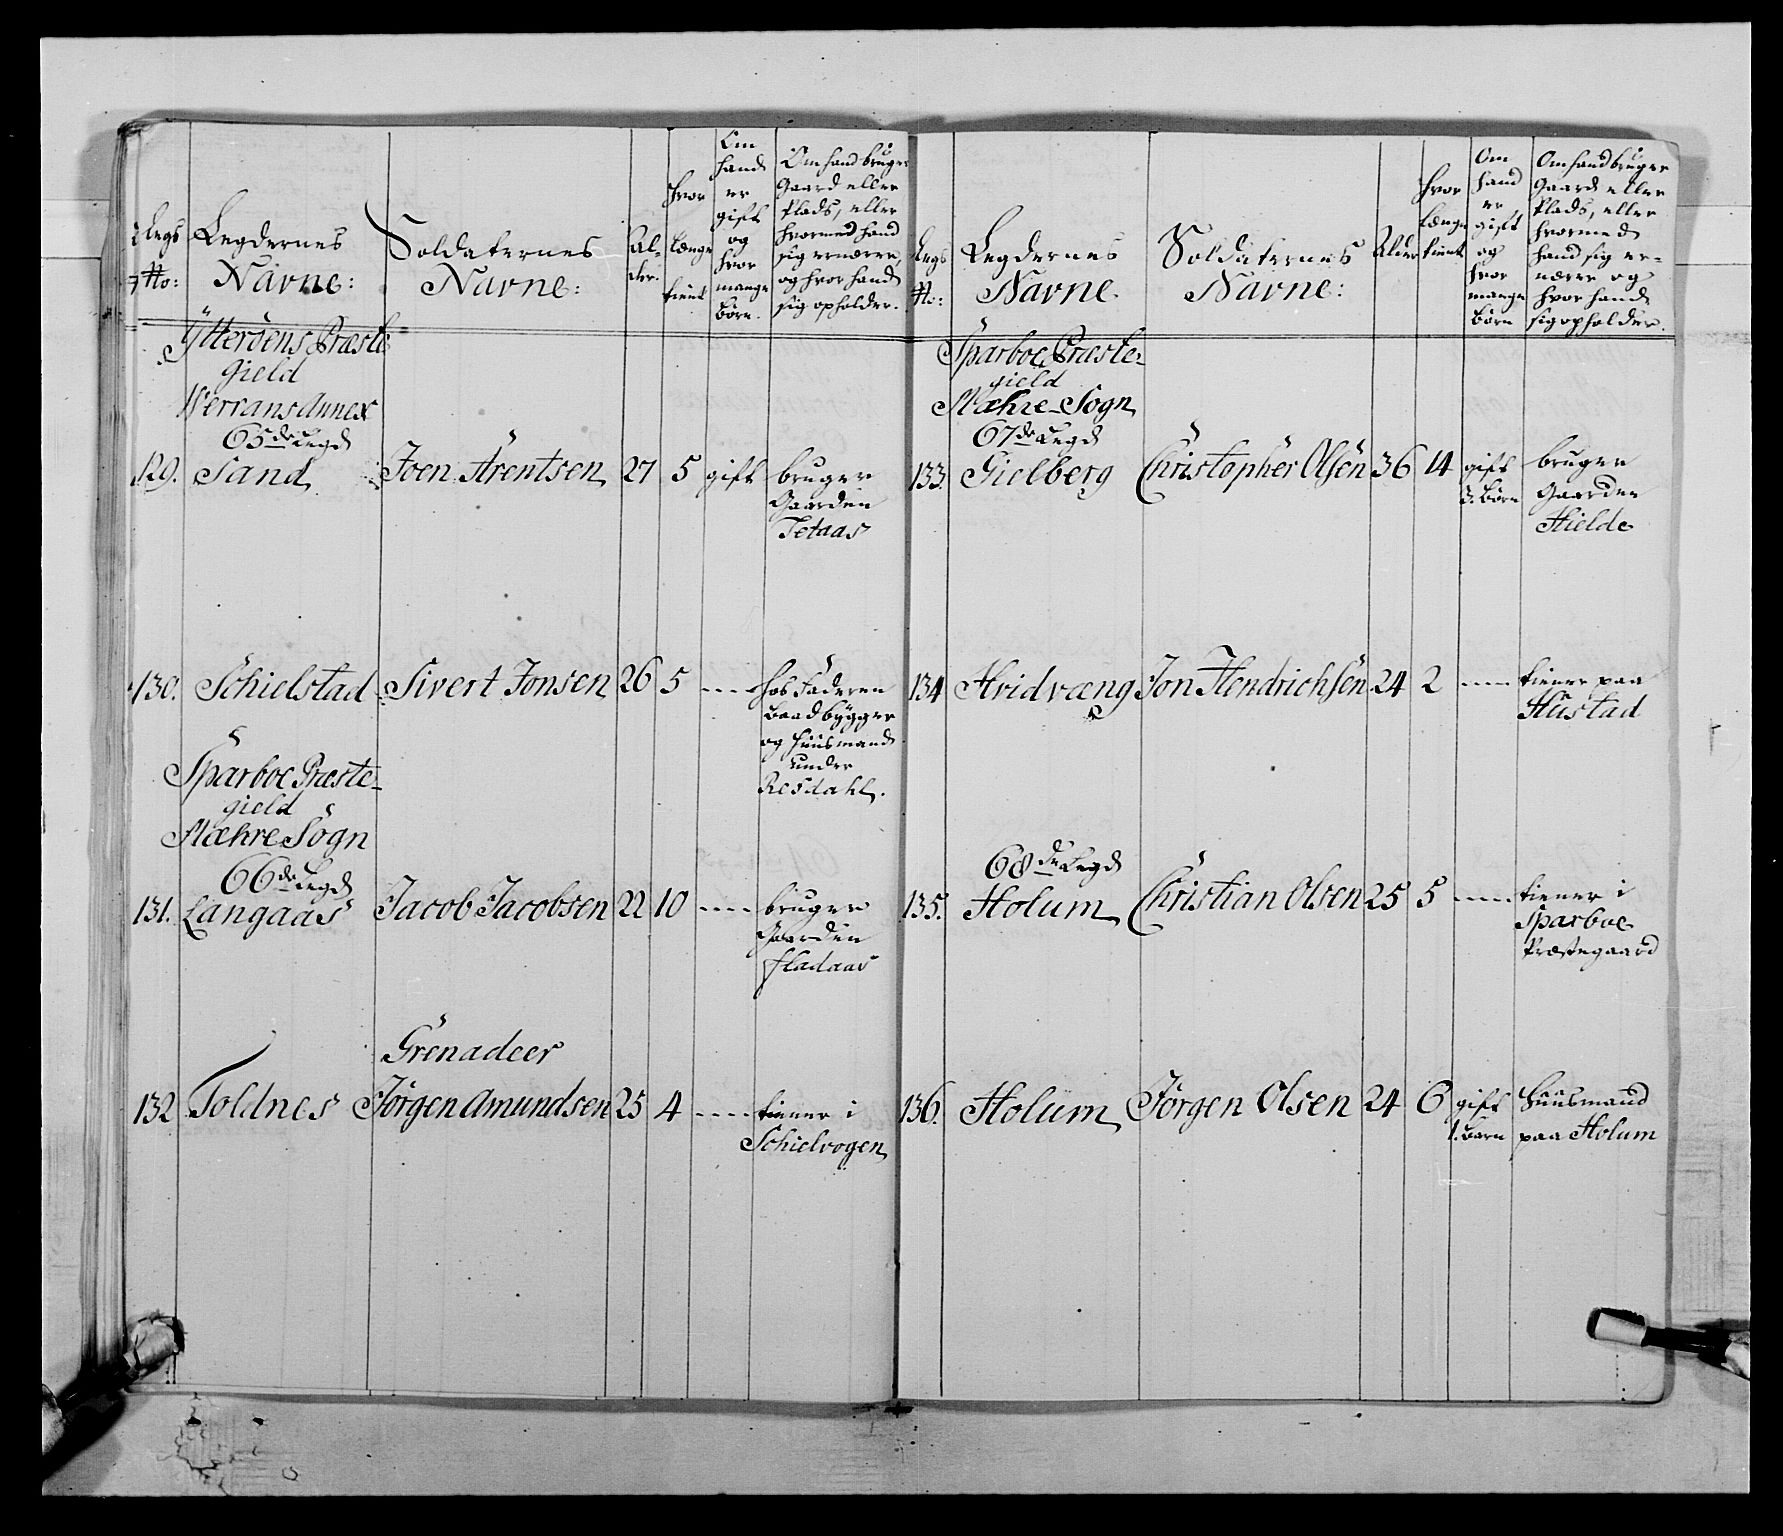 Legs
No:
Legdernes
Navne:
Soldaternes
Navne:
Al-
der.
hvor
længe
tient
Om
hand
er
gift
og
hvor
mange
børn.
Om hand bruger
Gaard eller
Plads, eller
hvormed hand
sig ernærer,
og hvor hand
sig opholder.
Ytterøens Præste
gield
Werrans Annex
65de Legd
129. Sand Joen Arentsen 27 5 gift bruger
Gaarden
Tetaas
130. Schielstad Sivert Jonsen 26 5 ---- hos Faderen
Baadbygger
og Huusmand
under
Resdahl.
Sparboe Præste-
gield
Mæhre Sogn
66de Legd
131. Langaas Jacob Jacobsen 22 10 ---- bruger
Gaarden
Fladaas
Grenadeer
132 Toldnes Jørgen Amundsen 25 4 ---- tiener i
Schielvogen
Legs
No:
Legdernes
Navne
Soldaternes
Navne:
Alder
hvor
længe
tient
Om
hand
er
gift
og
hvor
mange
Børn
Om hand bruger
Gaard eller
Plads, eller
hvormed
hand sig er-
nærer og
hvor hand
sig opholder.
Sparboe Præste-
gield
Mæhre Sogn
67de Legd
133. Gielberg Christopher Olsen 36 14 gift bruger
3. Børn Gaarden
Hielde
134 Hridvæng Jon Hendrichsen 24 2 ---- tiener paa
Hustad
68de Legd
135. Holum Christian Olsen 25 5 ---- tiener i
Sparboe
Præstegaard
136. Holum Jørgen Olsen 24 6 gift Huusmand
1. Barn paa Holum